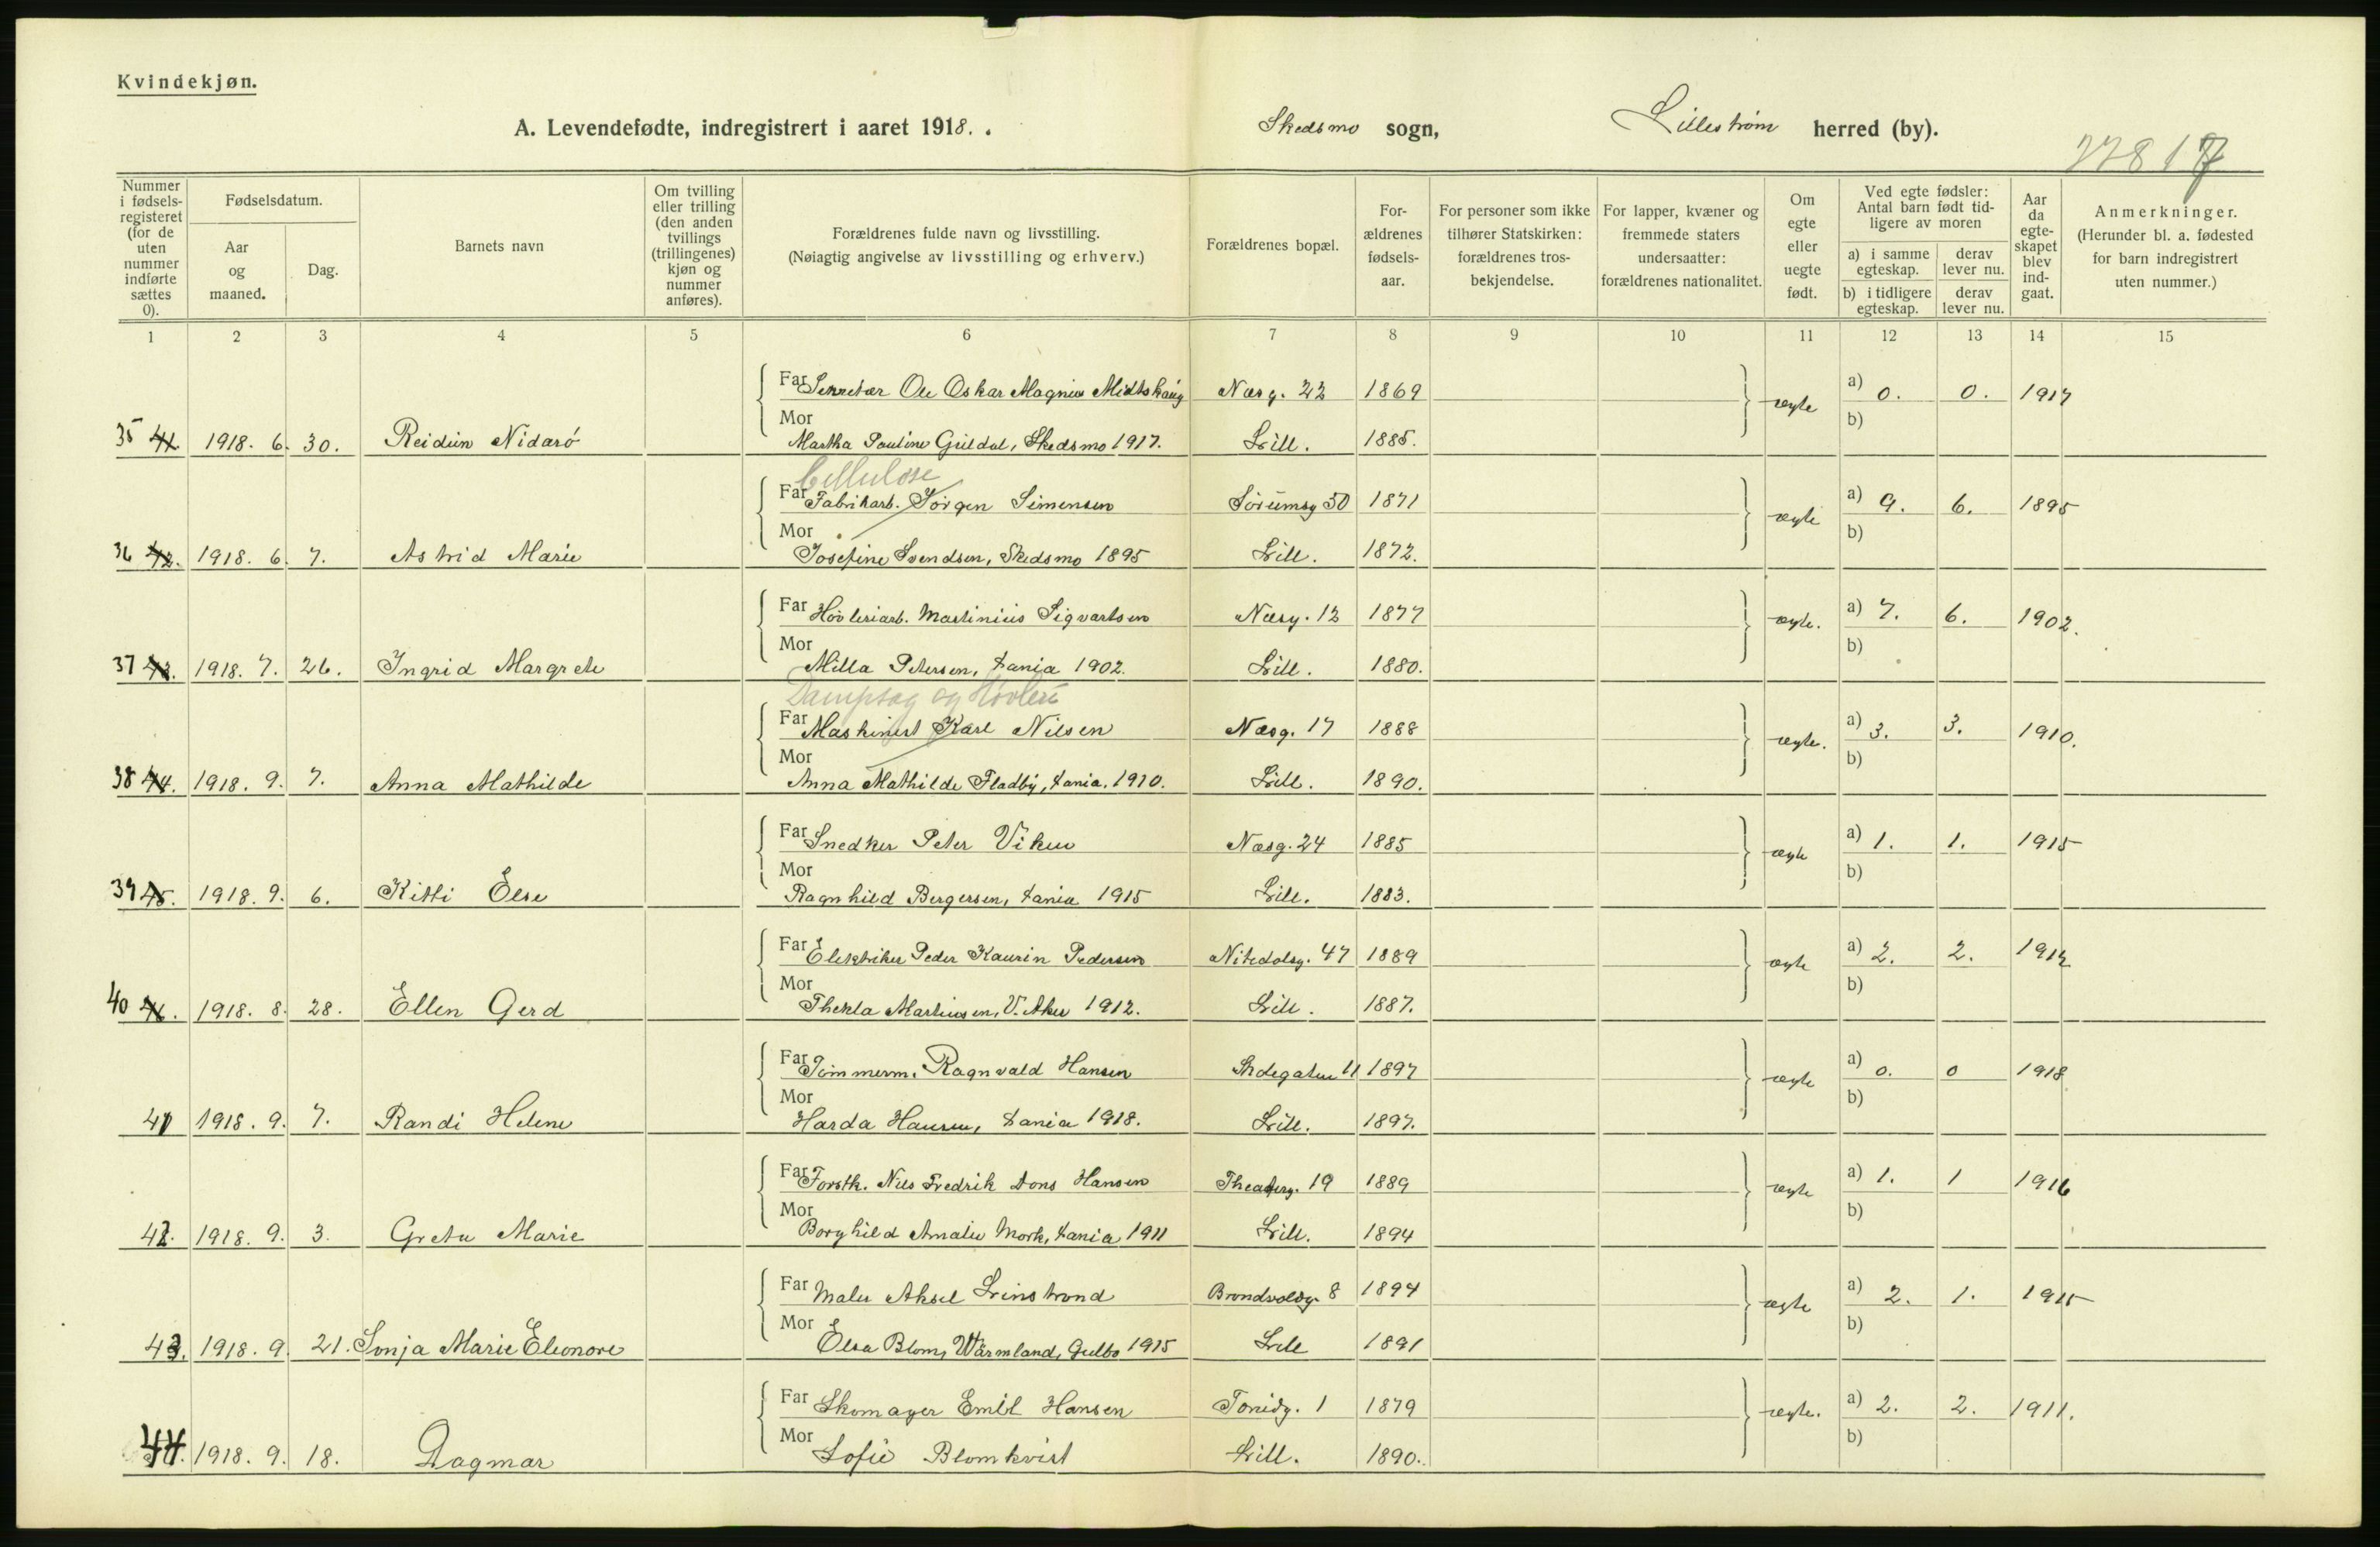 Kvindekjøn.
A. Levendefødte, indregistrert i aaret 1918. . Skedsmo sogn, Lillestrøm herred (by).
Nummer i fødselsregisteret (for de uten nummer indførte sættes 0).
Fødselsdatum.
Aar og maaned.
Dag.
Barnets navn
Om tvilling eller trilling (den anden tvillings (trillingenes) kjøn og nummer anføres).
Forældrenes fulde navn og livsstilling.
(Nøiagtig angivelse av livsstilling og erhverv.)
Forældrenes bopæl.
Forældrenes fødselsaar.
For personer som ikke tilhører Statskirken: forældrenes trosbekjendelse.
For lapper, kvæner og fremmede staters undersaatter: forældrenes nationalitet.
Om egte eller uegte født.
Ved egte fødsler: Antal barn født tidligere av moren
a) i samme egteskap. derav lever nu.
b) i tidligere egteskap. derav lever nu.
Aar da egteskapet blev indgaat.
Anmerkninger.
(Herunder bl. a. fødested for barn indregistrert uten nummer.)
1 2 3 4 5 6 7 8 9 10 11 12 13 14 15
Far Sekretær Ole Oskar Magnus Midtskaug Næsg. 22 1869 ægte a) 0. 0. 1917
Mor b)
35 41 1918. 6. 30. Reidun Nidarö Martha Pauline Guldal, Skedsmo 1917. Lill. 1885.
Cellulose
Far Fabrikarb. Jörgen Simensen Sörumsg 50 1871 ægte a) 9. 6. 1895
Mor b)
36 42. 1918. 6. 7. Astrid Marie Josefine Svendsen, Skedsmo 1895 Lill. 1872.
Far Hövleriarb. Martinius Sigvartsen Næsg. 12 1877 ægte. a) 7. 6. 1902.
Mor b)
37 43. 1918. 7. 26. Ingrid Margrete Milla Petersen, Fania 1902. Lill. 1880.
Dampsag og Høvleri
Far Maskinist Karl Nilsen Næsg. 17 1888 ægte. a) 3. 3. 1910.
Mor b)
38 44. 1918. 9. 7. Anna Mathilde Anna Mathilde Fladby, 1910. Lill. 1890.
Far Snedker Peter Viken Næsg. 24 1885 ægte a) 1. 1. 1915
Mor b)
39 45. 1918. 9. 6. Kitti Else Ragnhild Bergersen, 1915 Lill. 1883.
Far Elektriker Peder Kaurin Pedersen Nitedalsg. 47 1889 ægte a) 2. 2. 1912
Mor b)
40 46. 1918. 8. 28. Ellen Gerd Thekla Martinsen, V. Aker 1912. Lill. 1887.
Far Tömmerm. Ragnvald Hansen 11 1897 ægte a) 0. 0 1918
Mor b)
41 1918. 9. 7. Randi Helene Harda Hansen, 1918. Lill. 1897.
Far Forstk. Nils Fredrik Dons Hansen Theaterg. 19 1889 ægte a) 1. 1 1916
Mor b)
42. 1918. 9. 3. Grete Marie Borghild Amalie Mork, 1911 Lill. 1894
Far Maler Aksel Brandvoldg. 8 1894 ægte a) 2. 1. 1915
Mor b)
43. 1918. 9. 21. Sonja Marie Eleonore Elsa Blom, Wärmland, 1915 Lill 1891
Far Skomager Emil Hansen 1 1879 ægte. a) 2. 2. 1911.
Mor b)
44. 1918. 9. 18. Dagmar Sofie Blomkvist Lill. 1890.